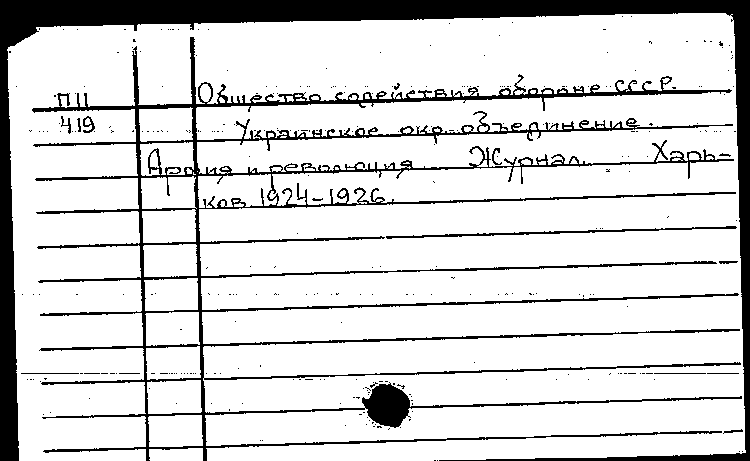 П11 Общество содействия обороне СССР.
419 Украинское окр. объединение.
Армия и революция. Журнал. Харь-
ков 1924-1926.